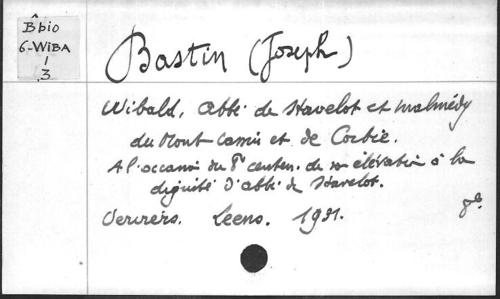 Bbio
6-WIBA
1
3
Bastin (Joseph)
Wibald, abbé de Stavelot et Malmédy
du Mont Cassin et de Corbie.
A l'occasion du 8e centen. de son élévation à la
dignité d'abbé de Stavelot.
Verviers. Leens. 1931.
8º.